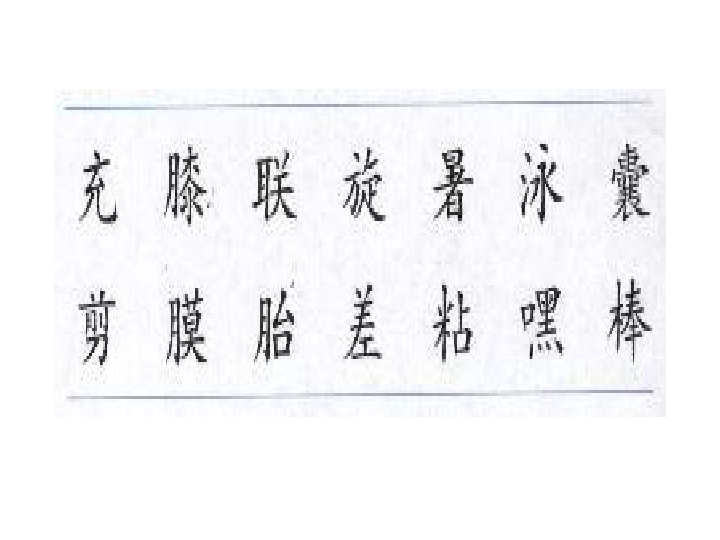 充膝联旋暑泳囊
剪膜胎差粘嘿棒